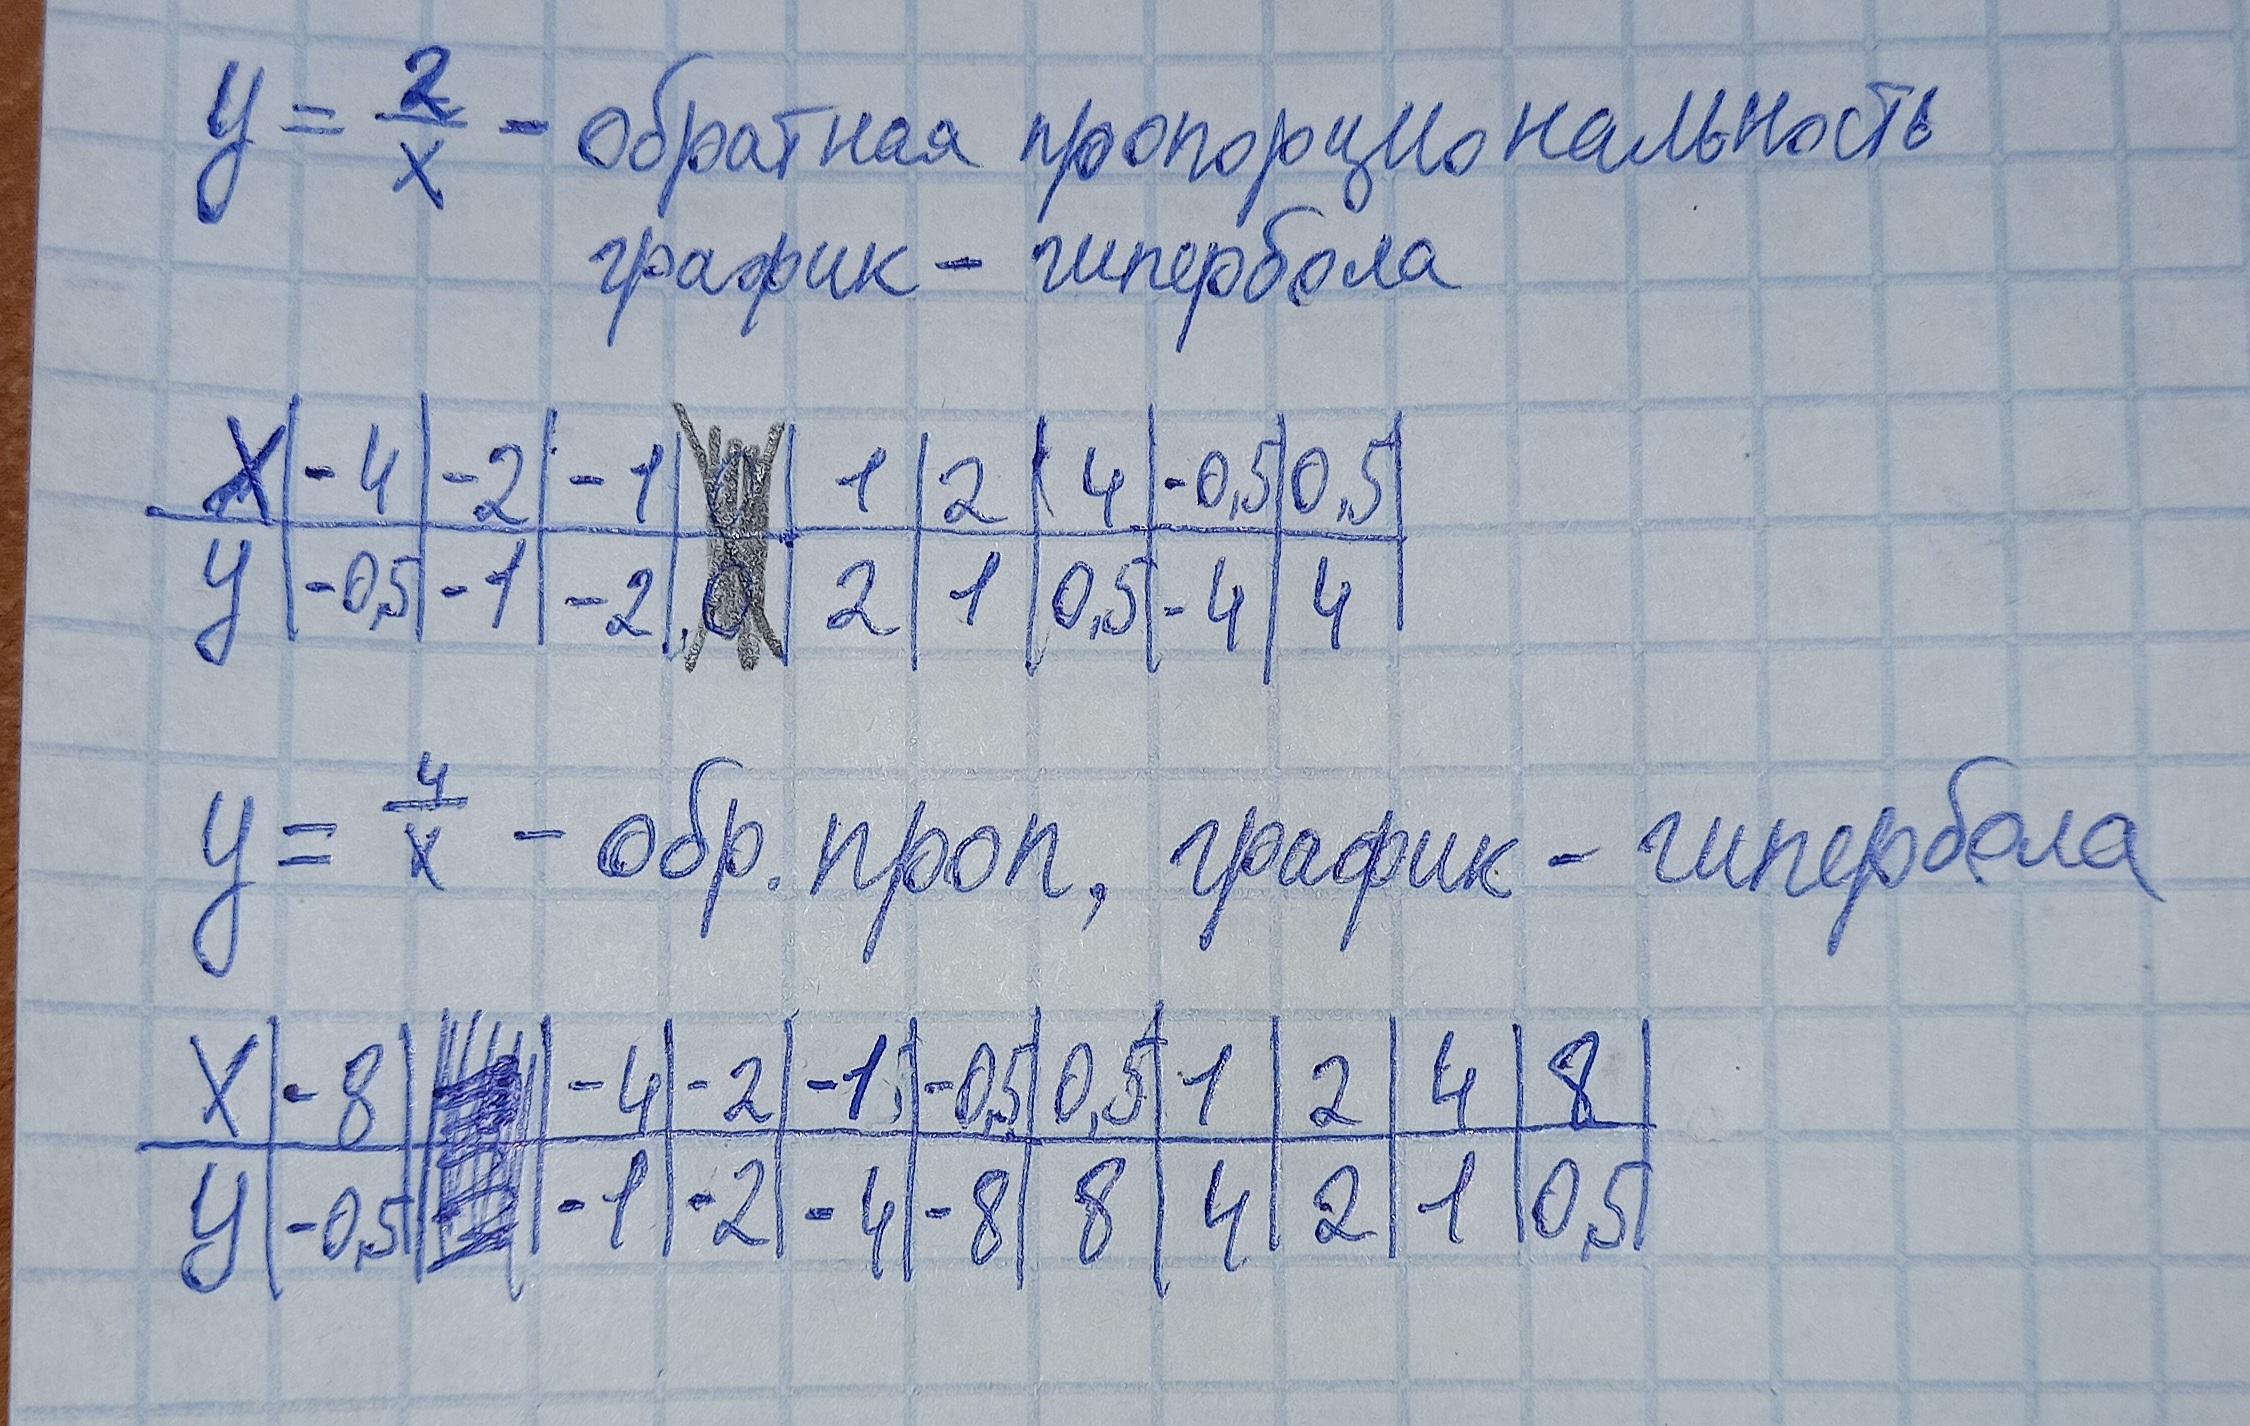 y = 2/x - обратная пропорциональность
график - гипербола
x | -4 | -2 | -1 | 0 | 1 | 2 | 4 | -0,5 | 0,5
y | -0,5 | -1 | -2 | 0 | 2 | 1 | 0,5 | -4 | 4
y = 4/x - обр. проп, график - гипербола
x | -8 | -4 | -2 | -1 | -0,5 | 0,5 | 1 | 2 | 4 | 8
y | -0,5 | -1 | -2 | -4 | -8 | 8 | 4 | 2 | 1 | 0,5